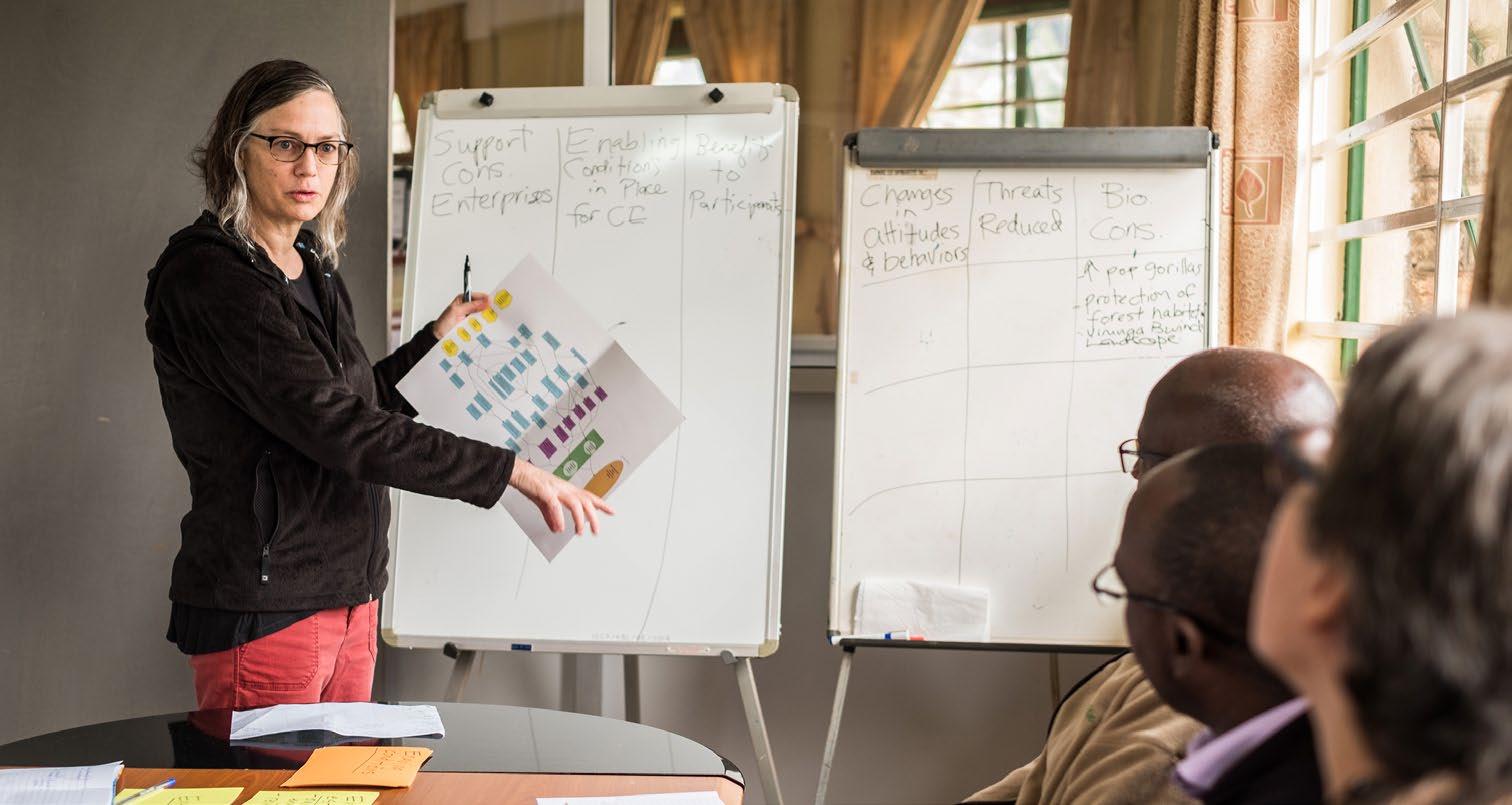 Support
Cons.
Enterprises
Enabling
Conditions
in Place
for CE
Benefits
to
Participants
Changes
in
attitudes
& behaviors
Threats
Reduced
Bio.
Cons.
↑ pop gorillas
- protection of
forest habitat
- Virunga Bwindi
Landscape